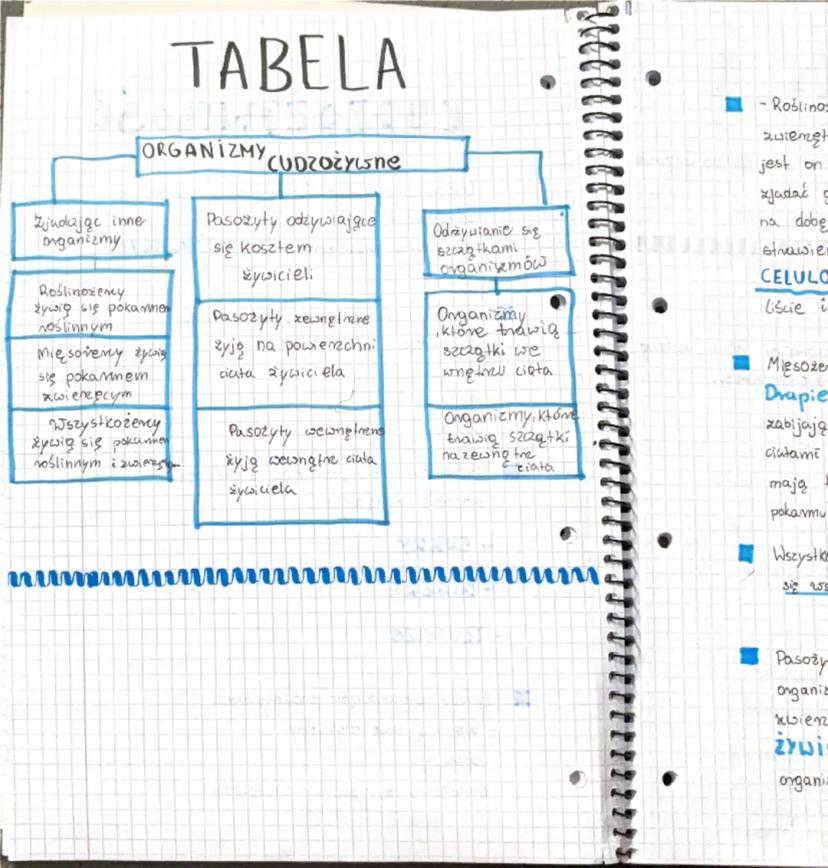 TABELA
ORGANIZMY CUDZOŻYWNE
Zjadając inne
organizmy
Roślinożercy
żywią się pokarmem
roślinnym
Mięsożercy żywią
się pokarmem
zwierzęcym
Wszystkożercy
żywią się pokarmem
roślinnym i zwierzęcym
Pasożyty odżywiające
się kosztem
żywicieli
Pasożyty zewnętrzne
żyją na powierzchni
ciała żywiciela
Pasożyty wewnętrzne
żyją wewnątrz ciała
żywiciela
Odżywianie się
szczątkami
organizmów
Organizmy
które trawią
szczątki we
wnętrzu ciała
Organizmy, które
trawią szczątki
na zewnątrz
ciała
- Roślinoż
zwierzęt
jest on
zjadać
na dobę
strawien
CELULO
liście i
Mięsożer
Drapie
zabijają
ciałami
mają
pokarmu
Wszystko
się ws
Pasoży
organiz
zwierz
żywi
organi